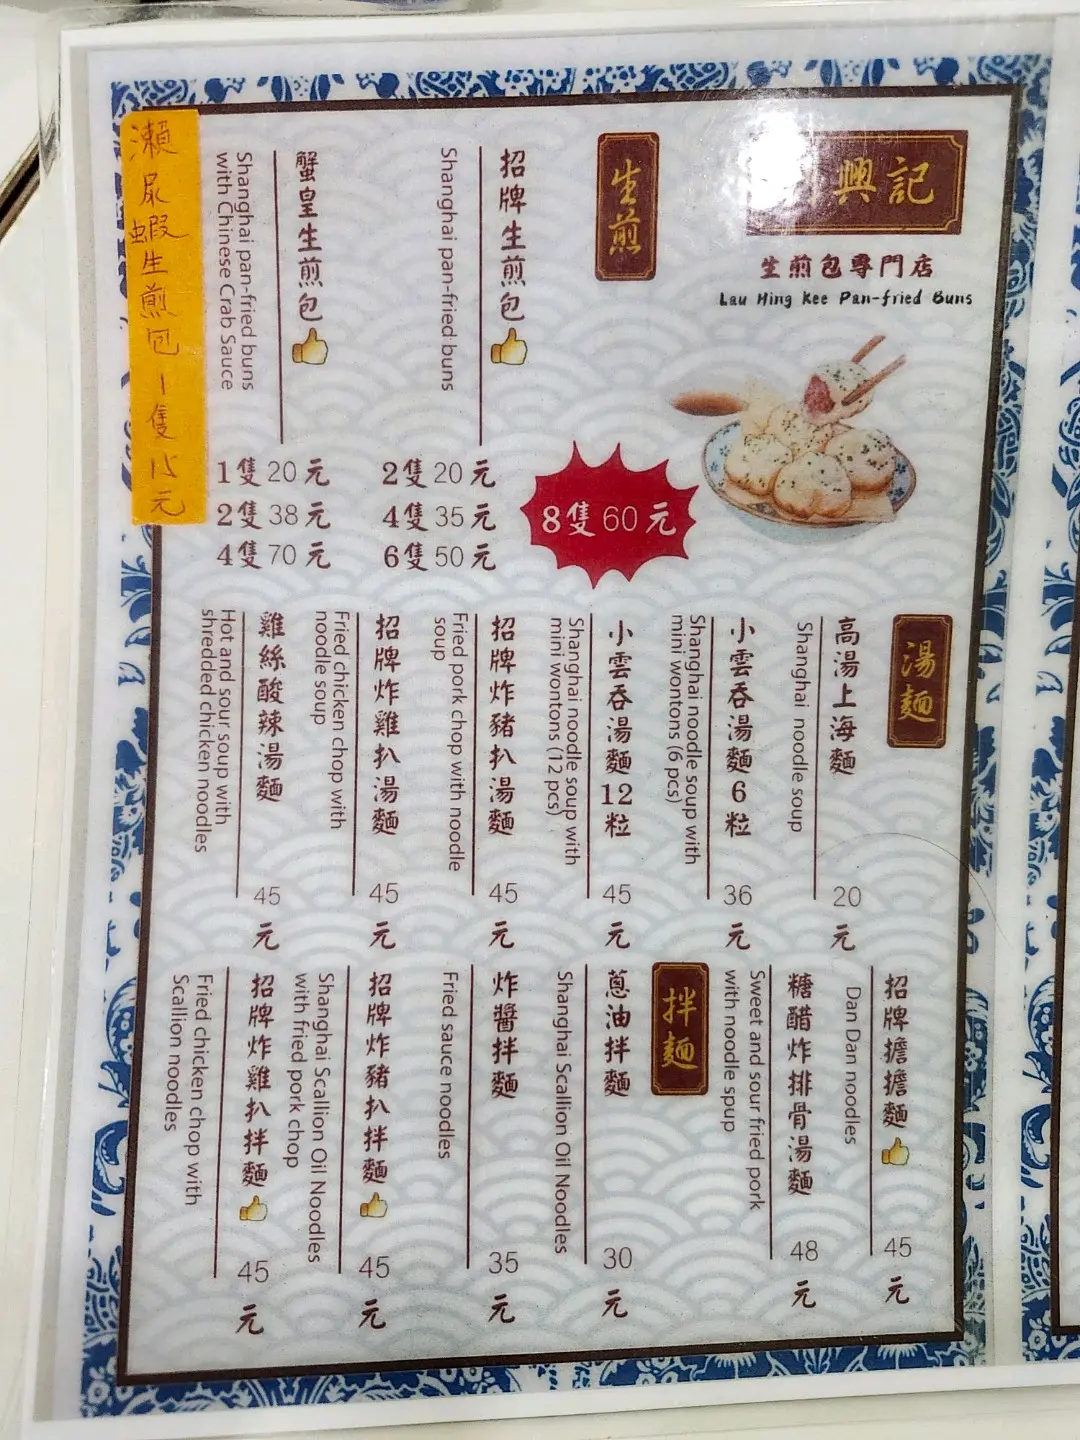 興記
生煎包專門店
Lau Hing Kee Pan-fried Buns
生煎
招牌生煎包
Shanghai pan-fried buns
2隻20元
4隻35元
6隻50元
8隻60元
蟹皇生煎包
Shanghai pan-fried buns
with Chinese Crab Sauce
1隻20元
2隻38元
4隻70元
瀨尿蝦生煎包1隻15元
湯麵
高湯上海麵
Shanghai noodle soup
20元
小雲吞湯麵6粒
Shanghai noodle soup with
mini wontons (6 pcs)
36元
小雲吞湯麵12粒
Shanghai noodle soup with
mini wontons (12 pcs)
45元
招牌炸豬扒湯麵
Fried pork chop with noodle
soup
45元
招牌炸雞扒湯麵
Fried chicken chop with
noodle soup
45元
雞絲酸辣湯麵
Hot and sour soup with
shredded chicken noodles
45元
招牌擔擔麵
Dan Dan noodles
45元
糖醋炸排骨湯麵
Sweet and sour fried pork
with noodle spup
48元
拌麵
蔥油拌麵
Shanghai Scallion Oil Noodles
30元
炸醬拌麵
Fried sauce noodles
35元
招牌炸豬扒拌麵
Shanghai Scallion Oil Noodles
with fried pork chop
45元
招牌炸雞扒拌麵
Fried chicken chop with
Scallion noodles
45元